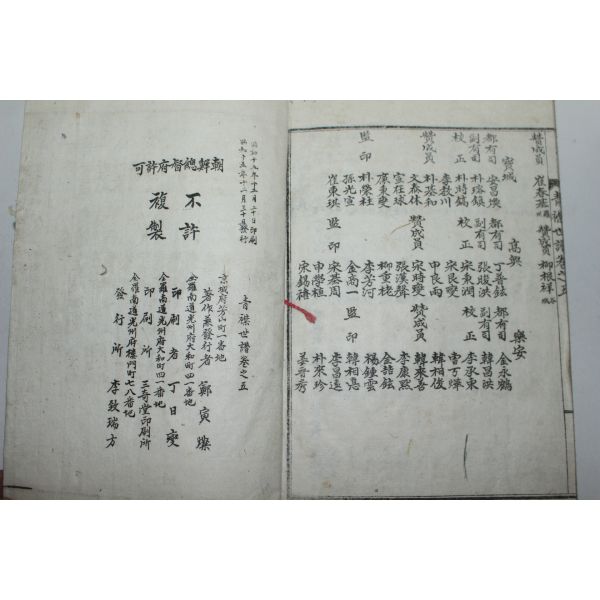 贊成員
崔春基
贊成
柳根祥
靑襟世譜卷之五
寶城
高興
樂安
都有司 安昌煥
都有司 丁善鉉
金永鶴
副有司 朴瑢鎮
副有司 張駿洪
韓昌洪
校正 朴時鎬
校正 宋東潤
李承東
李敎川
宋良燮
曺萬燁
朴基和
申良雨
韓相俊
贊成員
贊成員
韓來善
文泰休
宋時燮
李康默
宣在球
張漢聲
金語鉉
廉東燮
柳重㭆
楊鍾雲
朴榮柱
李芳河
韓相愚
監印
孫光宣
金高一
李昌遠
崔東琪
監印
宋基周
監印
朴來珍
申學植
姜晉秀
宋錫禧
昭和十五年十二月二十日印刷
昭和十五年十二月三十日發行
朝鮮總督府許可
不許
複製
靑襟世譜卷之五
京城府芳山町一番地
著作兼發行者 鄭寅燦
全羅南道光州府大和町四一番地
印刷者 丁日燮
全羅南道光州府大和町四一番地
印刷所 三奇堂印刷所
全羅南道光州府樓門町七八番地
發行所 李敎瑞方